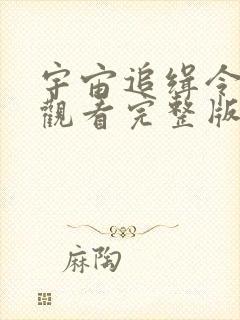 宇宙追缉令
觀看完整版
麻陶